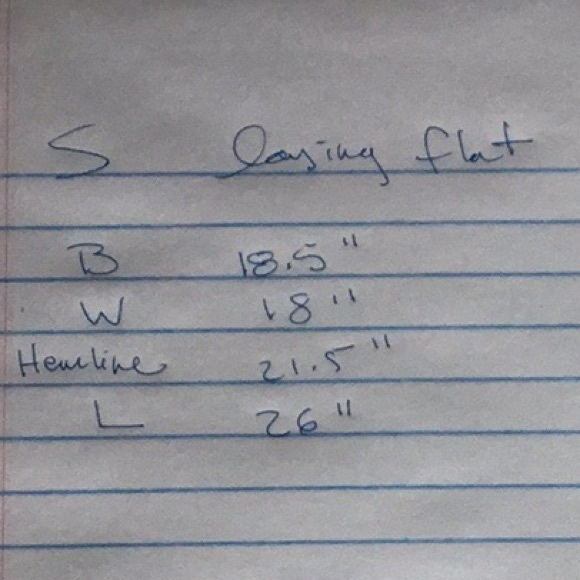 S laying flat
B 18.5"
W 18"
Hemline 21.5"
L 26"